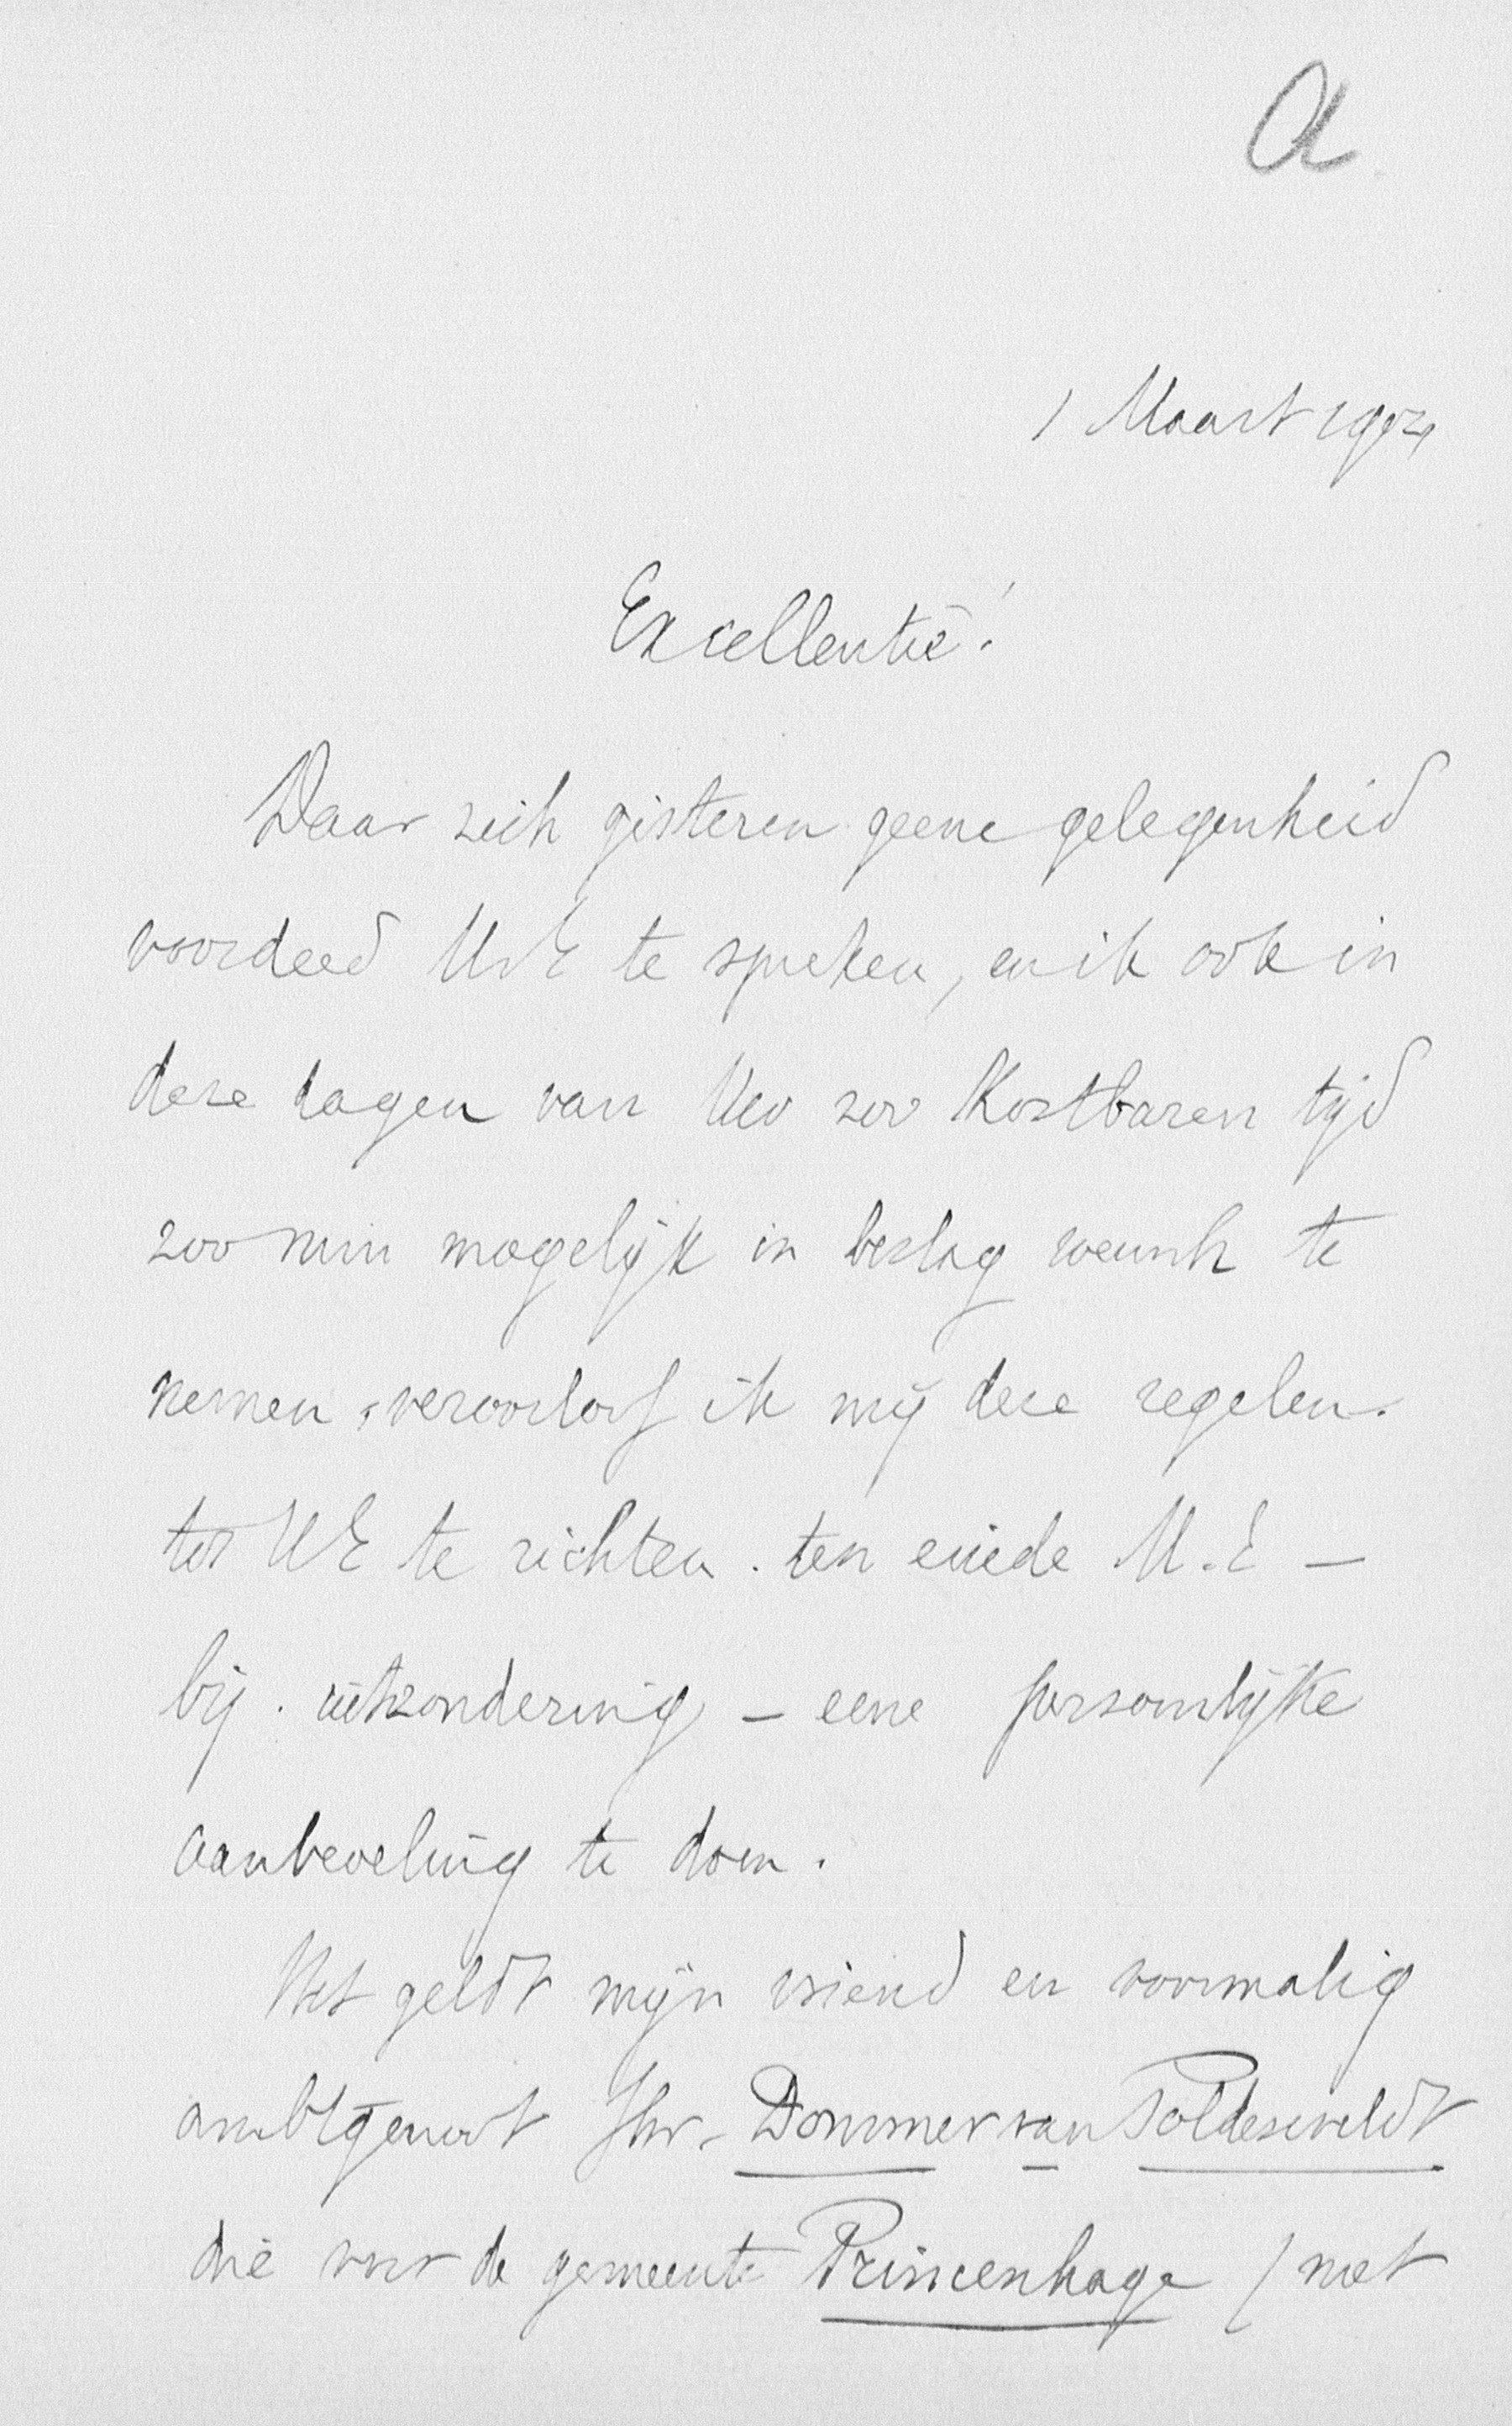 a
1 Maart 1904
Excellentie!
Daar zich gisteren geene gelegenheid
voordeed UwE te spreken, en ik ook in
deze dagen van Uw zoo Kostbaren tijd
zoo min mogelijk in beslag wensch te
nemen, veroorloof ik mij deze regelen
tot UE te richten. ten einde U.E –
bij uitzondering – eene persoonlijke
aanbeveling te doen.
Het geldt mijn vriend en voormalig
ambtgenoot Jhr. Dommer van Poldersveldt
die voor de gemeente Princenhage (met